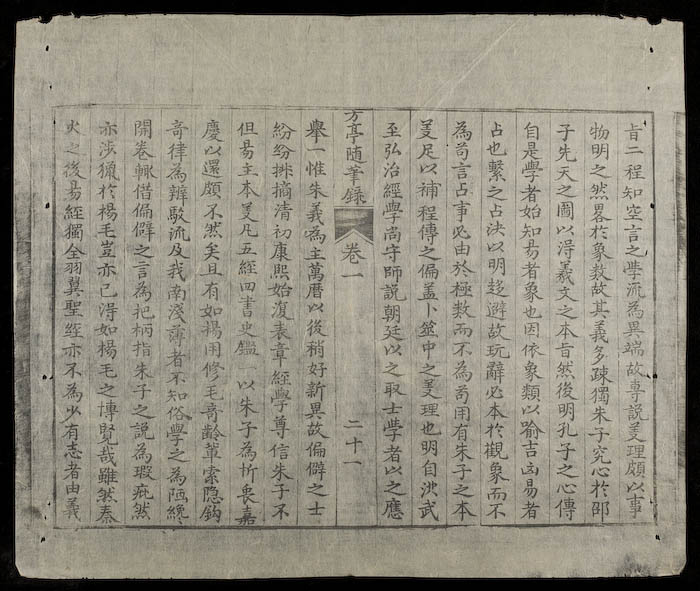 旨二程知空言之學流為異端故專説羑理頗以事
物明之然畧於象数故其義多疎獨朱子究心於邵
子先天之圖以淂羲文之本旨然後明孔子之心傳
自是學者始知易者象也因依象類以喻吉凶易者
占也繫之占决以明趍避故玩辭必本於觀象而不
為苟言占事必由於極數而不為苟用有朱子之本
羑足以補程傳之偏盖卜筮中之羑理也明自洪武
至弘治經學尚守師説朝廷以之取士學者以之應
方亭随筆錄 卷一 二十一
舉一惟朱義為主萬曆以後稍好新異故偏僻之士
紛紛排擿清初康熙始復表章經學尊信朱子不
但易主本羑凡五經四書史鑑一以朱子為折衷嘉
慶以還頗不然矣且有如揚用修毛竒齡軰索隐鈎
奇律為辨駁流及我南淺薄者不知俗學之為陋纔
開卷輙借偏僻之言為把柄指朱子之説為瑕疵然
亦涉獵於楊毛豈亦已淂如楊毛之博覽哉雖然秦
火之後易經獨全羽翼聖經亦不為少有志者由義